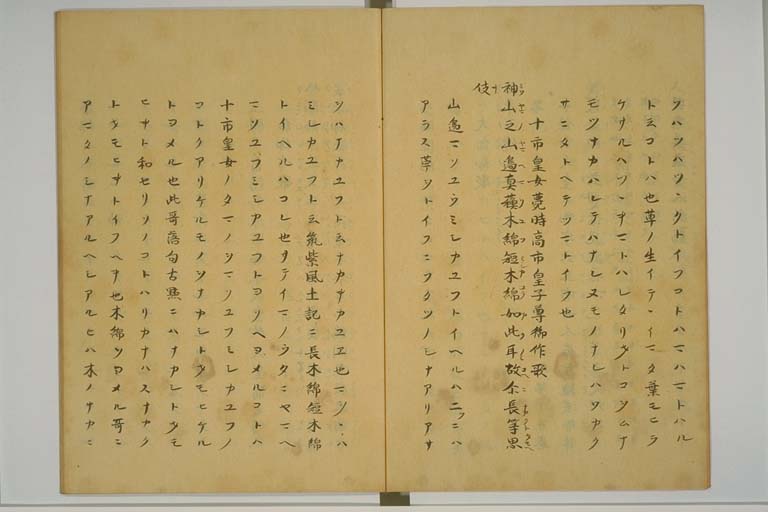 ツハツハツ〻クトイフコトハマハマトハル
トミコトハ也草ノ生イテ〻イマタ葉モヒラ
ケサルハツ〻キマトハレタリキトコツムナ
モツナカハレテハナレヌモノナレハツカク
サニタトヘテツマトイフ也
十市皇女薨時高市皇子尊御作歌
神山之山邊真蘓木綿短木綿如此耳故尓長等思
伎
山邊マソユウミシカユフトイヘルハ二ツニハ
アラス苧ヲトイフニフタツノシナアリアサ
ヲハナカユフト云ナカキカユエ也マソ〻ハ
ミシカユフト云筑紫風土記ニ長木綿短木綿
トイヘルハコレ也サテイマノウタニヤマヘ
マソユフミシカユフトヨソヘヨメルコトハ
十市皇女ノタマノヲマソユフミシカユフノ
コトクアリケルモノヲナカシトオモヒケル
トヨメル也此哥落句古點ニハナカシトオモ
ヒキト和セリソノコトハリカナハスナカク
トオモヒキトイフヘキ也木綿ヲヨメル哥ニ
アマタノシナアルヘシアルヒハ木ノサカニ